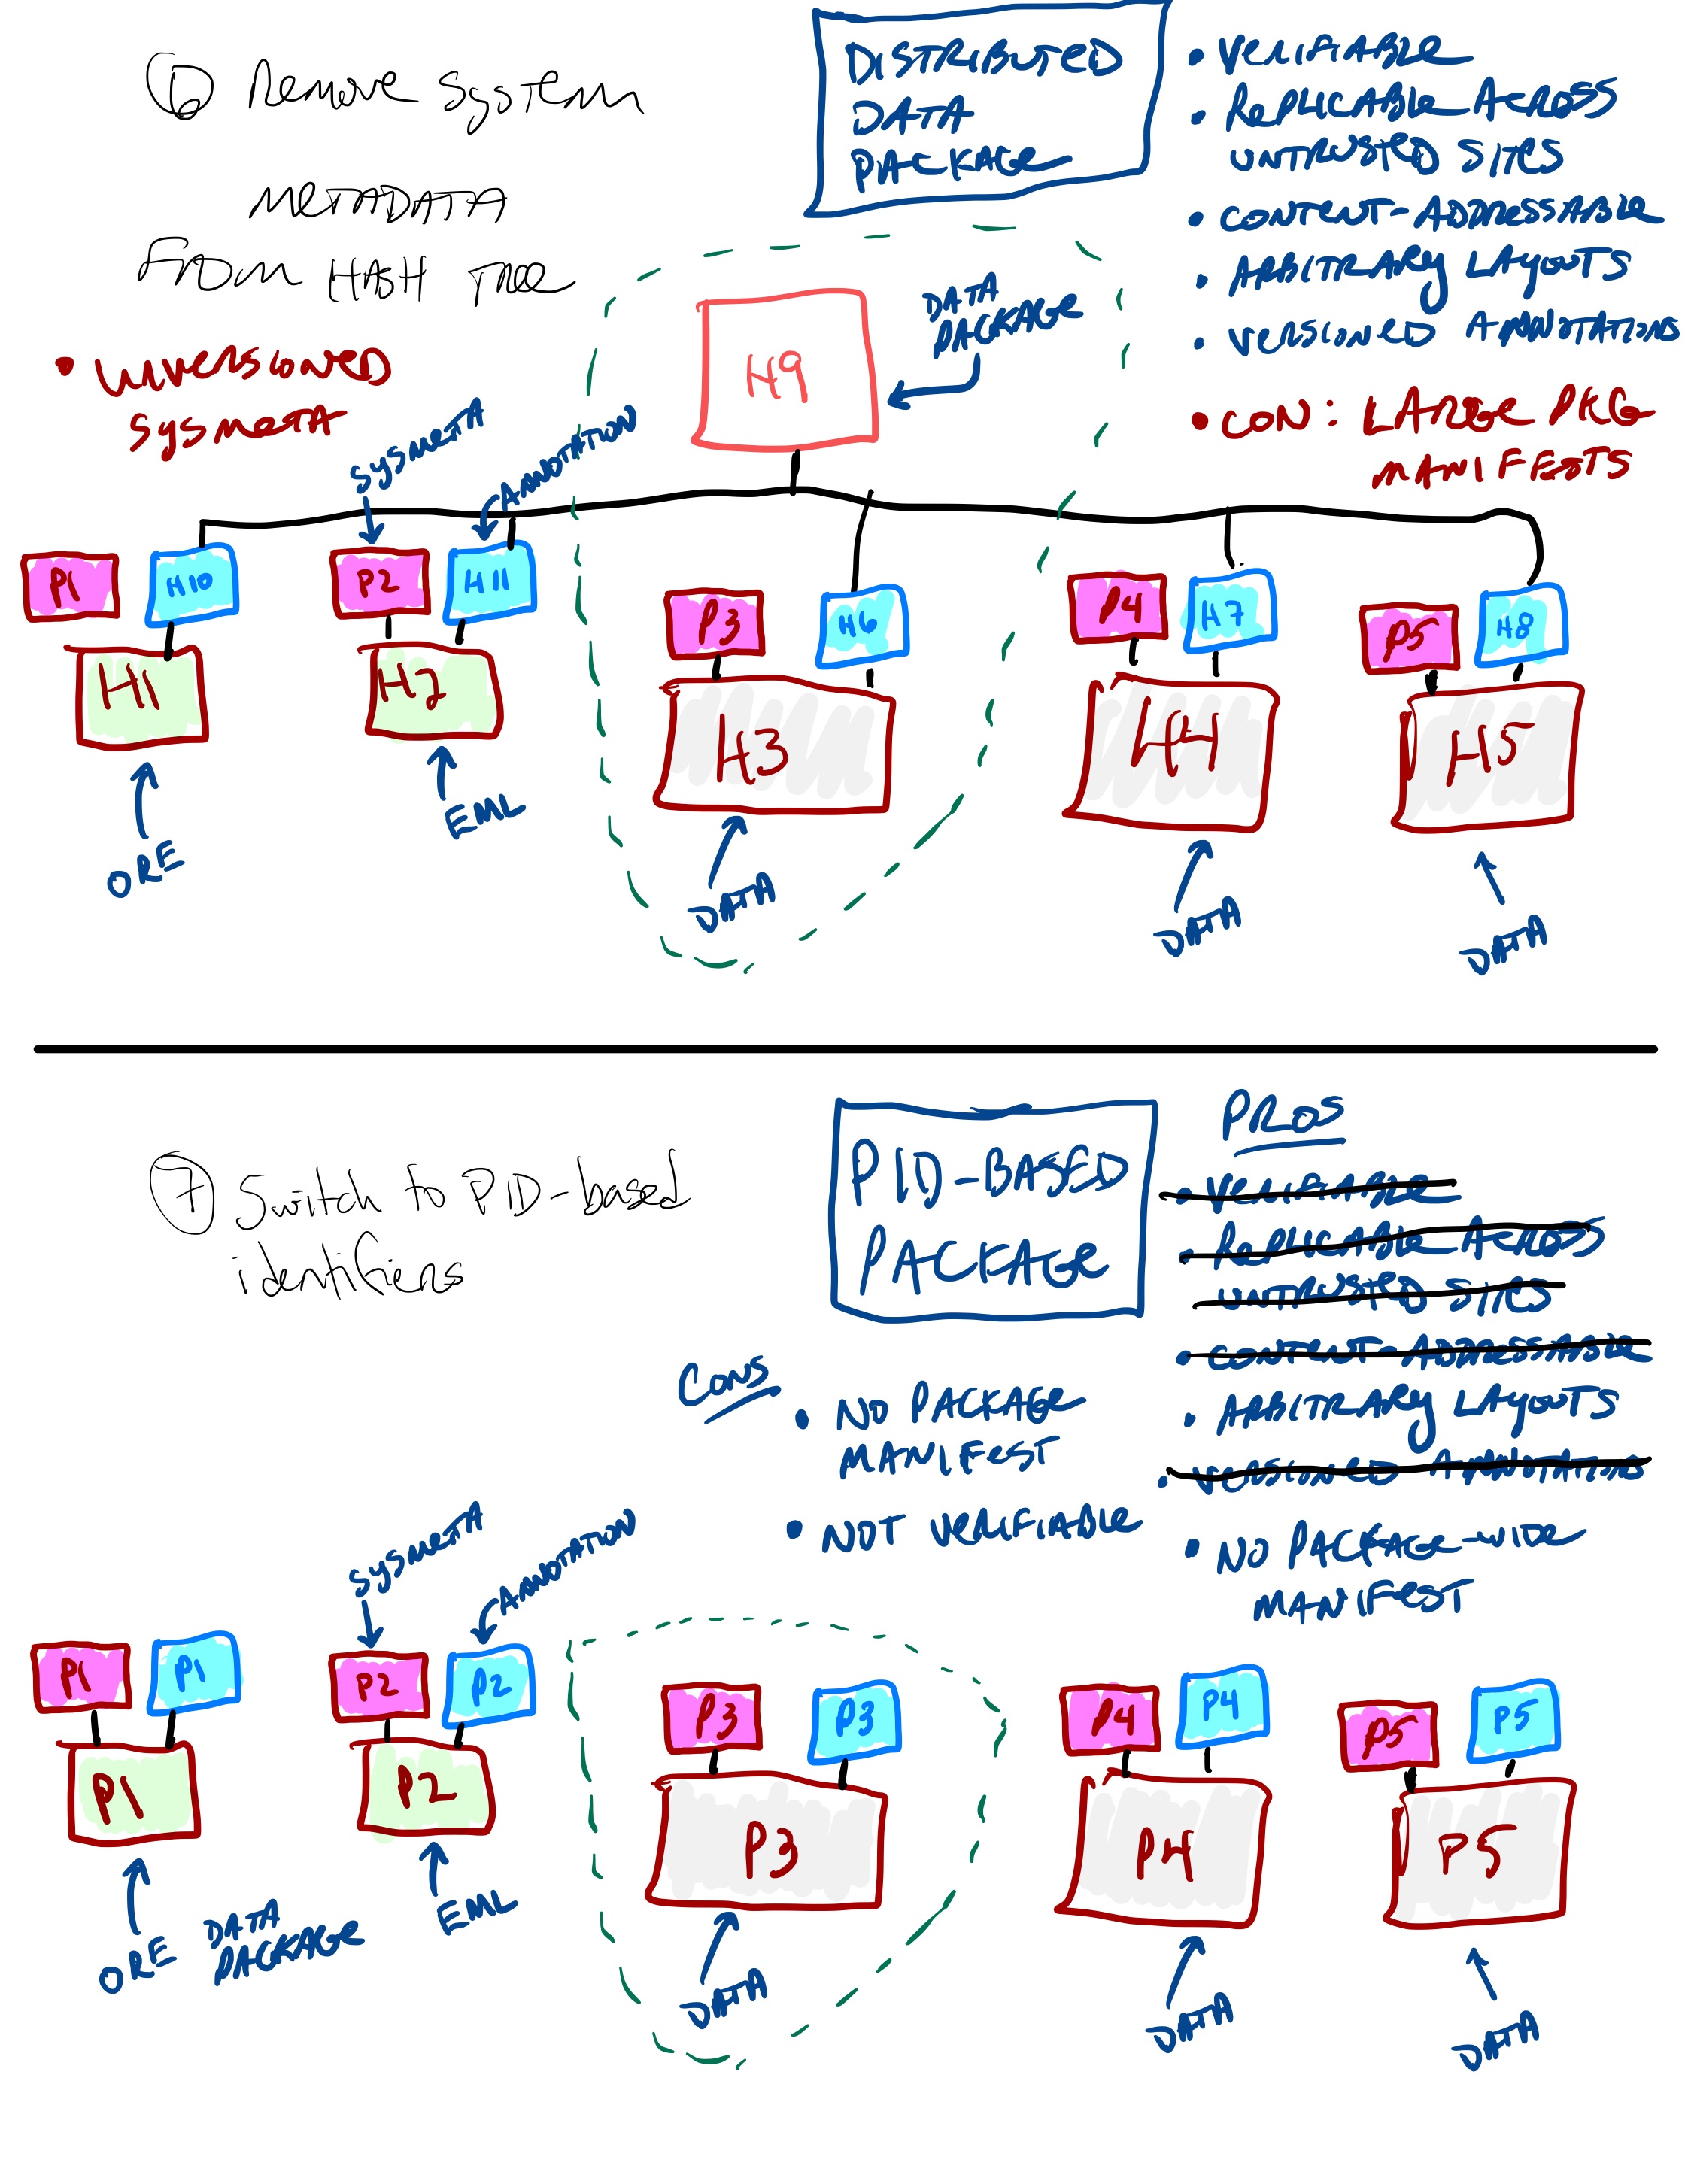 ⑥ Remove System
METADATA
From HASH Tree
• UNVERSIONED
SYSMETA
DISTRIBUTED
DATA
PACKAGE
• VERIFIABLE
• REPLICABLE ACROSS
UNTRUSTED SITES
• CONTENT-ADDRESSABLE
• ARBITRARY LAYOUTS
• VERSIONED ANNOTATIONS
• CON: LARGE PKG
MANIFESTS
DATA
PACKAGE
H9
SYSMETA
ANNOTATION
P1
H10
P2
H11
P3
H6
P4
H7
P5
H8
H1
H2
H3
H4
H5
ORE
EML
DATA
DATA
DATA
⑦ Switch to PID-based
identifiers
PID-BASED
PACKAGE
PROS
• VERIFIABLE
• REPLICABLE ACROSS
UNTRUSTED SITES
• CONTENT-ADDRESSABLE
• ARBITRARY LAYOUTS
• VERSIONED ANNOTATIONS
• NO PACKAGE-WIDE
MANIFEST
Cons
• NO PACKAGE
MANIFEST
• NOT VERIFIABLE
SYSMETA
ANNOTATION
P1
P1
P2
P2
P3
P3
P4
P4
P5
P5
P1
P2
P3
P4
P5
ORE
DATA
PACKAGE
EML
DATA
DATA
DATA